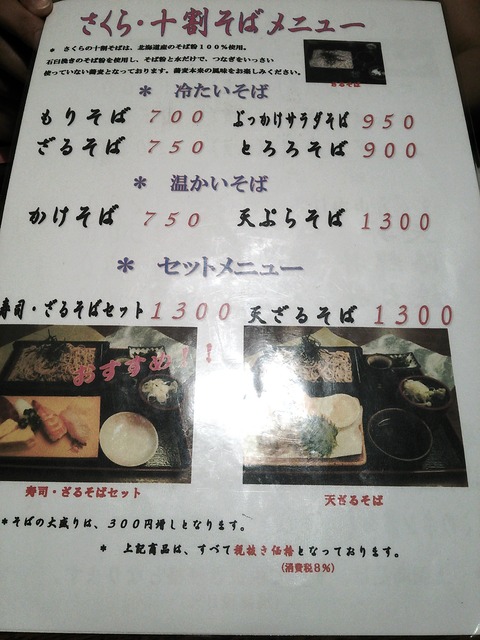 さくら・十割そばメニュー
* さくらの十割そばは、北海道産のそば粉100%使用。
石臼挽きのそば粉を使用し、そば粉と水だけで、つなぎをいっさい
使っていない蕎麦となっております。蕎麦本来の風味をお楽しみください。
ざるそば
* 冷たいそば
もりそば 700 ぶっかけサラダそば 950
ざるそば 750 とろろそば 900
* 温かいそば
かけそば 750 天ぷらそば 1300
* セットメニュー
寿司・ざるそばセット 1300 天ざるそば 1300
おすすめ!!
寿司・ざるそばセット 天ざるそば
*そばの大盛りは、300円増しとなります。
* 上記商品は、すべて税抜き価格となっております。
(消費税8%)